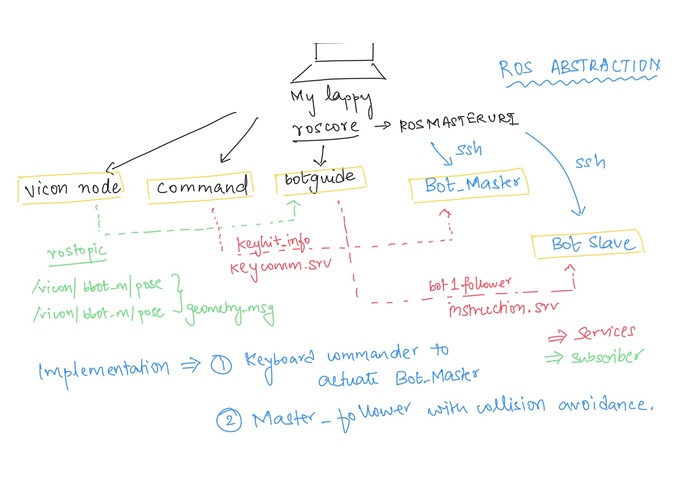 ROS ABSTRACTION
My lappy
roscore → ROSMASTERURI
ssh
ssh
vicon node
command
botguide
Bot_Master
Bot Slave
rostopic
/vicon/bbot_m/pose
/vicon/bbot_m/pose
geometry-msg
keyhit_info
keycomm.srv
bot1follower
instruction.srv
⇒ Services
⇒ subscriber
Implementation ⇒ ① Keyboard commander to
actuate Bot_Master
② Master_follower with collision avoidance.